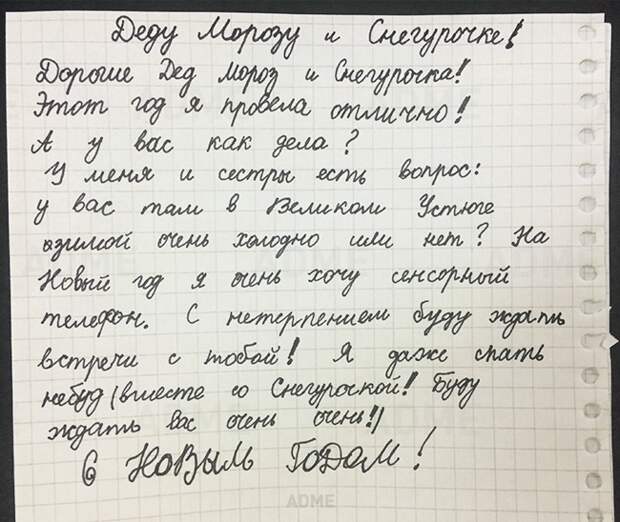 Деду Морозу и Снегурочке!
Дорогие Дед Мороз и Снегурочка!
Этот год я провела отлично!
А у вас как дела?
У меня и сестры есть вопрос:
у вас там в Великом Устюге
зимой очень холодно или нет? На
Новый год я очень хочу сенсорный
телефон. С нетерпением буду ждать
встречи с тобой! Я даже спать
небуд (вместе со Снегурочкой! Буду
ждать вас очень очень!)
С НОВЫМЬ ГОДОМ!
ADME